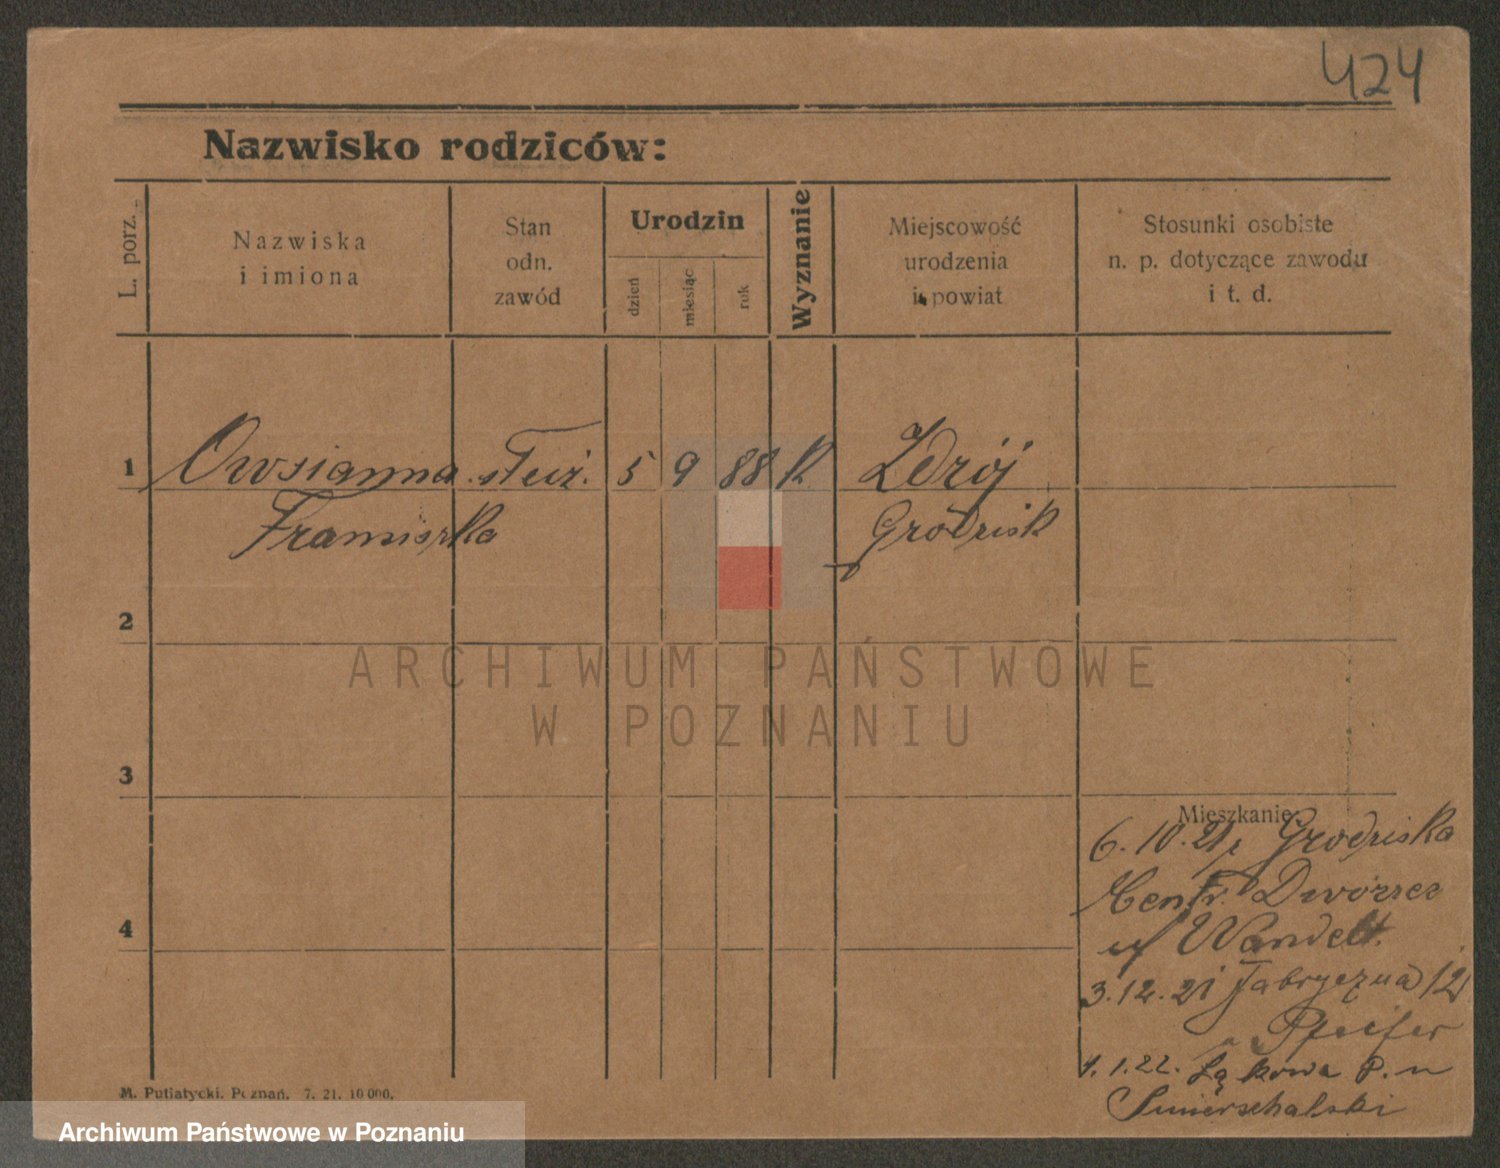 424
Nazwisko rodziców:
L. porz.
Nazwiska
i imiona
Stan
odn.
zawód
Urodzin
dzień
miesiąc
rok
Wyznanie
Miejscowość
urodzenia
i powiat
Stosunki osobiste
n. p. dotyczące zawodu
i t. d.
1 Owsianna służ. 5 9 88 K. Zdrój
Franciszka Grodzisk
2
3
4
ARCHIWUM PAŃSTWOWE
W POZNANIU
Mieszkanie:
6. 10. 21 Grodziska
Centr. Dworzec
Wandelt.
3. 12. 21 Fabryczna 12
Pfeifer
1. 1. 22. Łąkowa
M. Putiatycki. Poznań. 7. 21. 10 000.
Archiwum Państwowe w Poznaniu